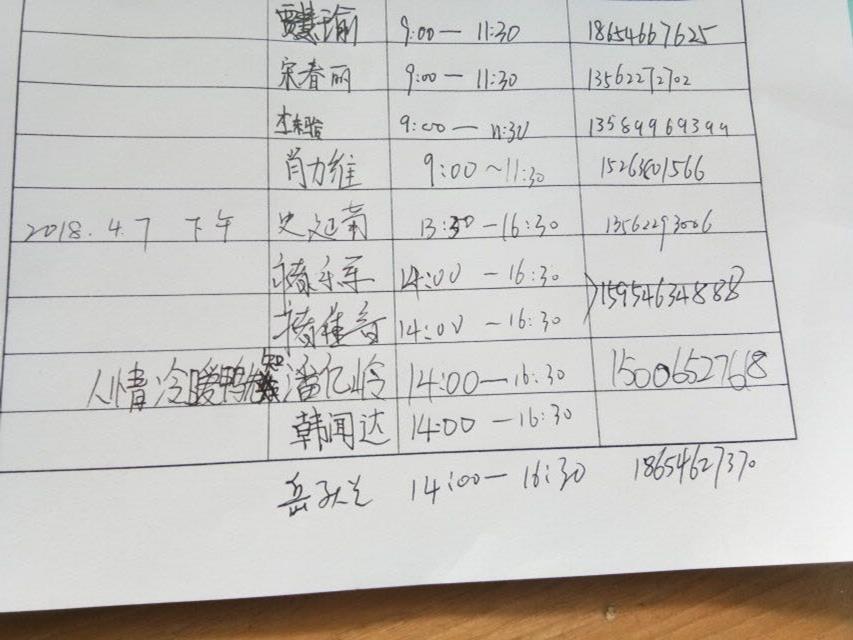 瑜 9:00 — 11:30 18654667625
宋春丽 9:00 — 11:30 13562272702
9:00 — 11:30 13589969399
肖力维 9:00 ~ 11:30 15263801566
2018.4.7 下午 史延菊 13:30 — 16:30 13562293006
14:00 — 16:30
15954634888
14:00 — 16:30
人情冷暖鸭 潘亿岭 14:00 — 16:30 15006527618
韩闻达 14:00 — 16:30
岳 14:00 — 16:30 18654627370